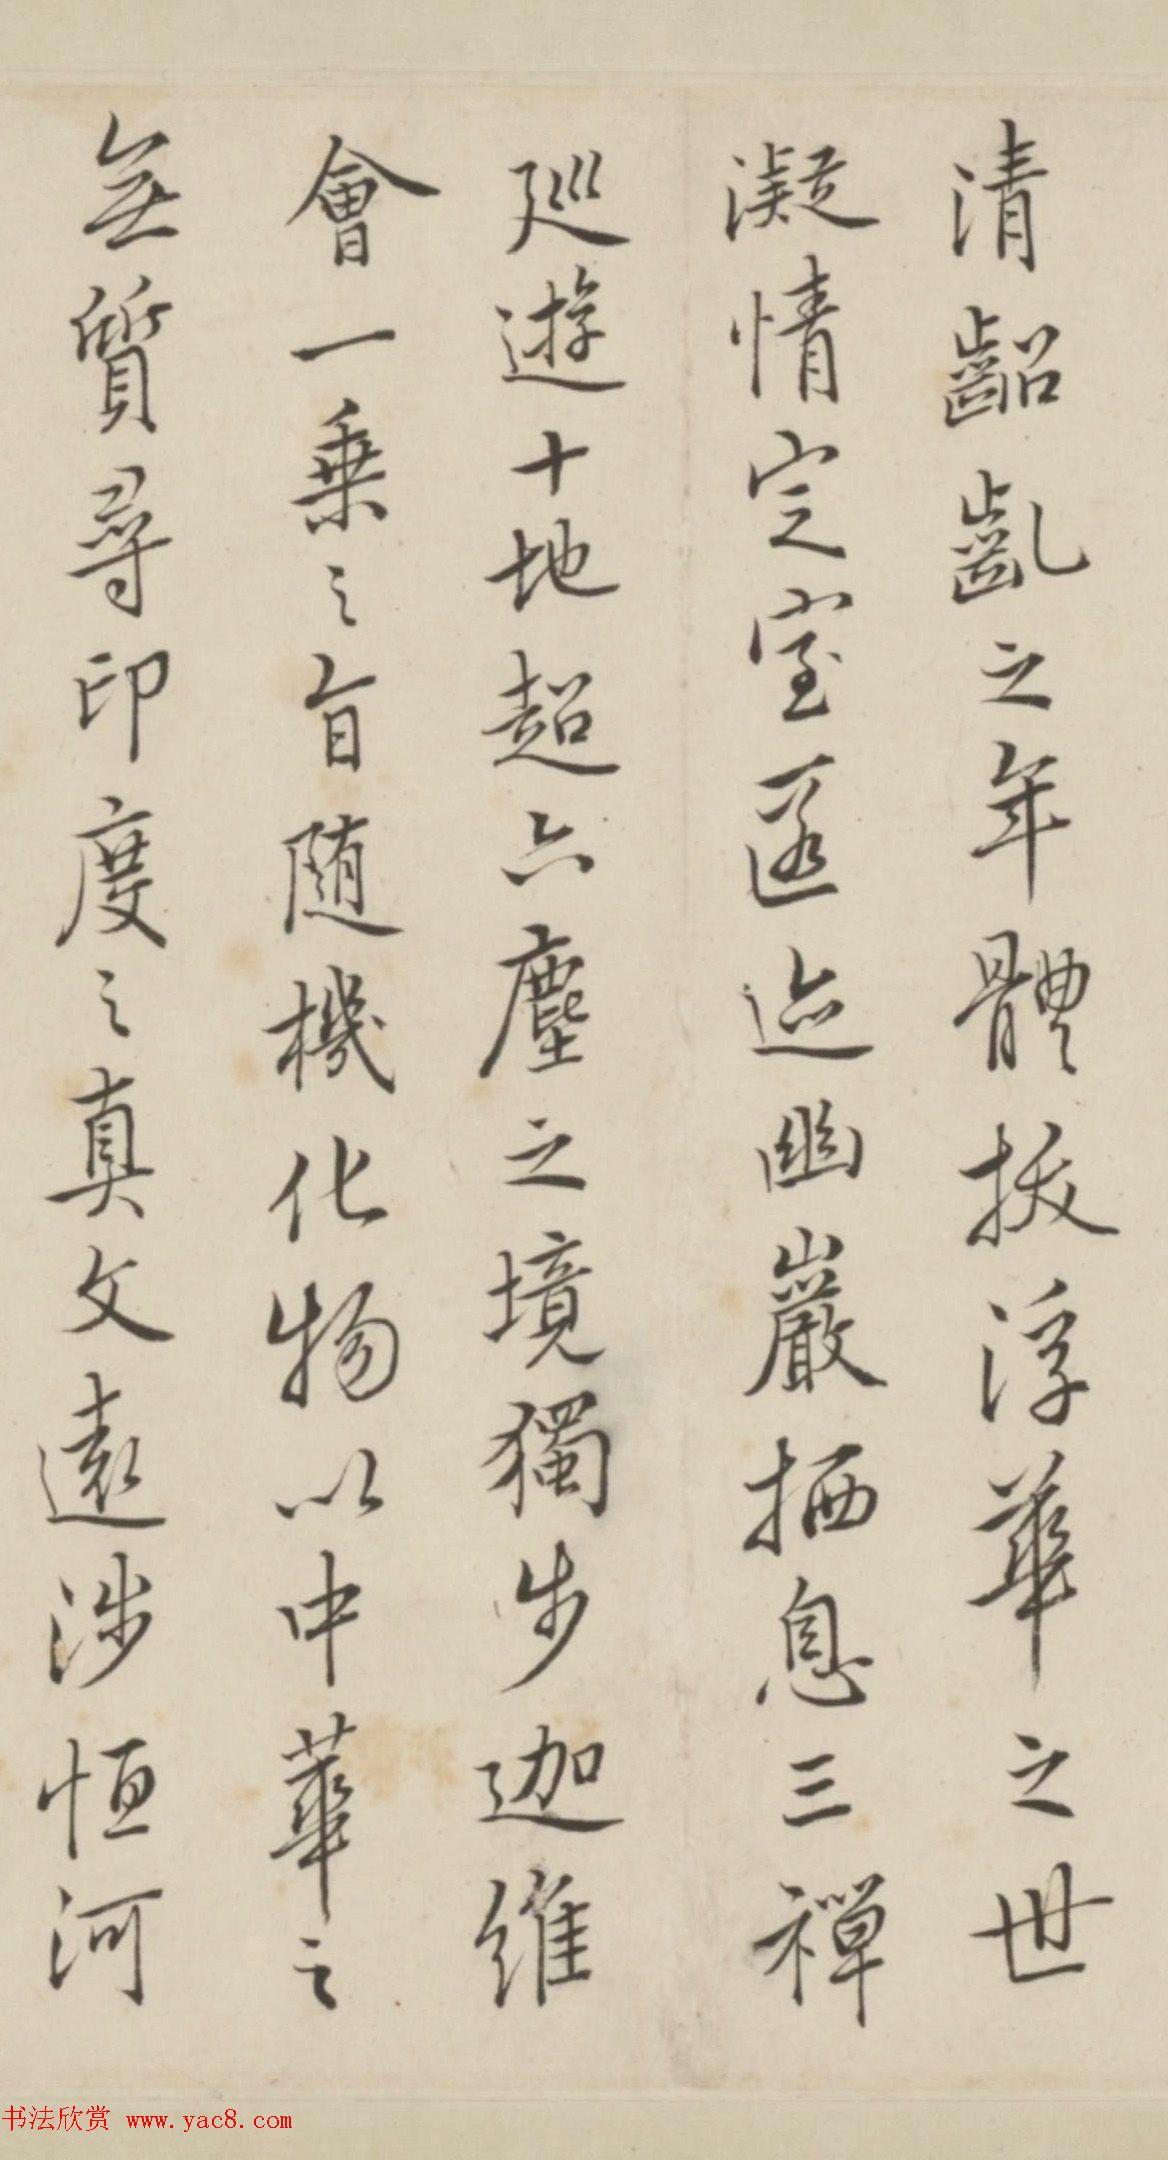 清齠齓之年體拔浮華之世
凝情定室匿迹幽巖栖息三禪
巡遊十地超六塵之境獨步迦維
會一乗之旨随機化物以中華之
無質尋印度之真文遠涉恒河
书法欣赏 www.yac8.com